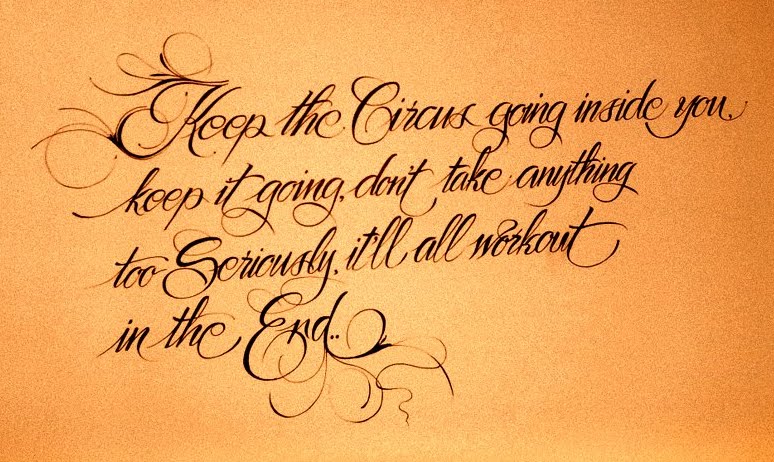 Keep the Circus going inside you,
keep it going, don't take anything
too Seriously, it'll all workout
in the End..